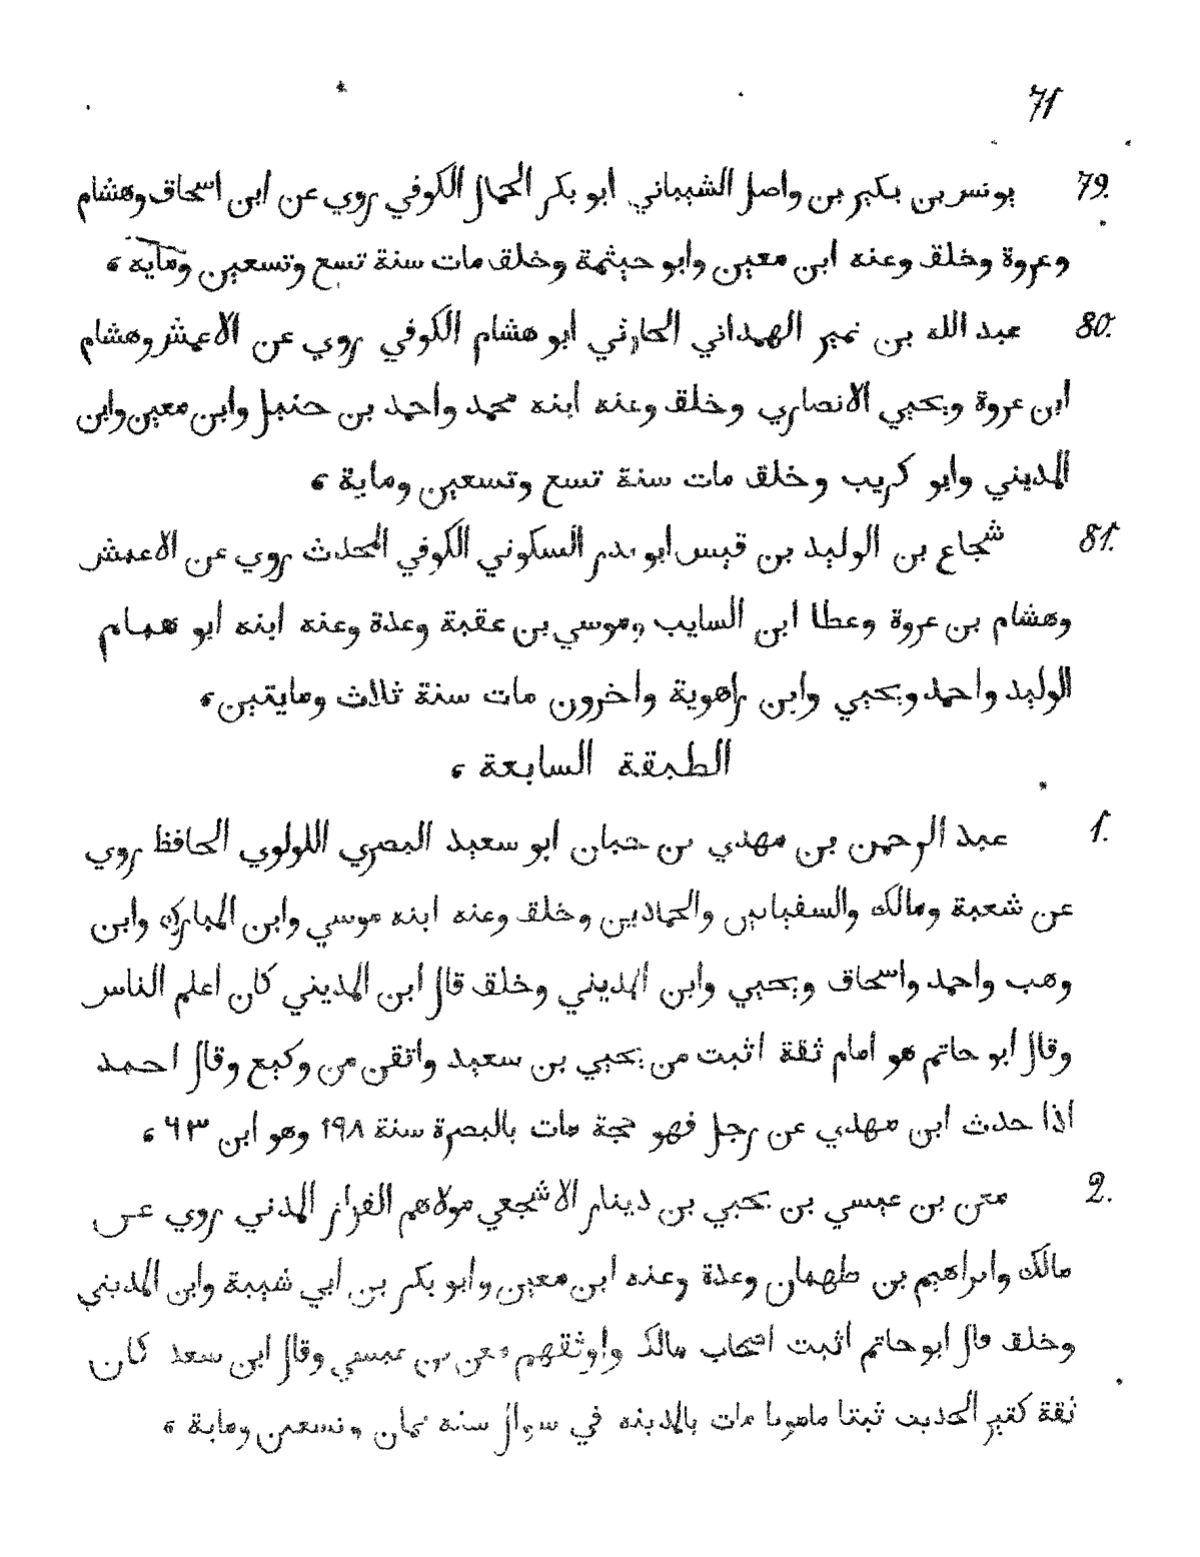 71
79. يونس بن بكير بن واصل الشيباني ابو بكر الحمال الكوفي روي عن ابن اسحاق وهشام
وعروة وخلق وعنه ابن معين وابو حيثمة وخلق مات سنة تسع وتسعين وماية ،
80. عبد الله بن نمير الهمداني الحارثي ابو هشام الكوفي روي عن الاعمش وهشام
ابن عروة ويحيي الانصاري وخلق وعنه ابنه محمد واحمد بن حنبل وابن معين وابن
المديني وابو كريب وخلق مات سنة تسع وتسعين وماية ،
81. شجاع بن الوليد بن قيس ابو بدر السكوني الكوفي المحدث روي عن الاعمش
وهشام بن عروة وعطا ابن السايب وموسي بن عقبة وعدة وعنه ابنه ابو همام
الوليد واحمد ويحيي وابن راهوية واخرون مات سنة ثلاث ومايتين ،
الطبقة السابعة ،
1. عبد الرحمن بن مهدي بن حبان ابو سعيد البصري اللولوي الحافظ روي
عن شعبة ومالك والسفيانين والحمادين وخلق وعنه ابنه موسي وابن المبارك وابن
وهب واحمد واسحاق ويحيي وابن المديني وخلق قال ابن المديني كان اعلم الناس
وقال ابو حاتم هو امام ثقة اثبت من يحيي بن سعيد واتقن من وكيع وقال احمد
اذا حدث ابن مهدي عن رجل فهو حجة مات بالبصرة سنة ١٩٨ وهو ابن ٦٣ ،
2. معن بن عيسي بن يحيي بن دينار الاشجعي مولاهم القزاز المدني روي عن
مالك وابراهيم بن طهمان وعدة وعنه ابن معين وابو بكر بن ابي شيبة وابن المديني
وخلق قال ابو حاتم اثبت اصحاب مالك واوثقهم معن بن عيسي وقال ابن سعد كان
ثقة كثير الحديث ثبتا مامونا مات بالمدينه في سوال سنه ثمان وتسعين وماية ،